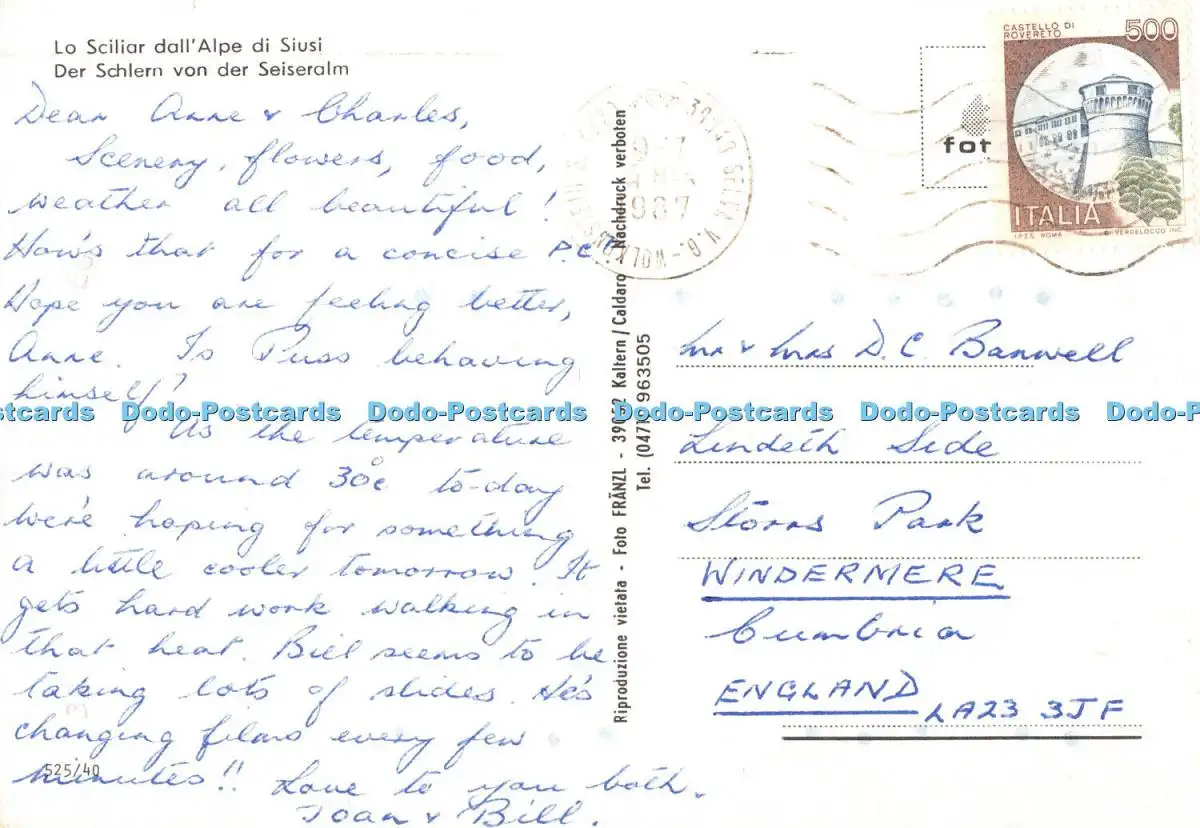 Lo Sciliar dall'Alpe di Siusi
Der Schlern von der Seiseralm
Dear Anne & Charles,
Scenery, flowers, food,
weather all beautiful!
How's that for a concise P.C.?
Hope you are feeling better,
Anne. Is Puss behaving
himself?
As the temperature
was around 30°c to-day
we're hoping for something
a little cooler tomorrow. It
gets hard work walking in
that heat. Bill seems to be
taking lots of slides. He's
changing films every few
minutes!! Love to you both.
Joan & Bill.
525/40
Riproduzione vietata - Foto FRÄNZL - 39052 Kaltern/Caldaro - Nachdruck verboten
Tel. (0471) 963505
39048 SELVA V.G. - WOLKENSTEIN
1987
fot
CASTELLO DI
ROVERETO
500
ITALIA
I.P.Z.S. ROMA
VERDELOCCO INC.
Mr & Mrs D. C. Banwell
Lindeth Side
Storrs Park
WINDERMERE
Cumbria
ENGLAND
LA23 3JF
stcards Dodo-Postcards Dodo-Postcards Dodo-Postcards Dodo-Postcards Dodo-P